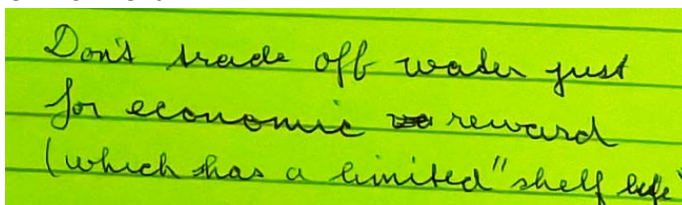 Don't trade off water just
for economic reward
(which has a limited "shelf life"